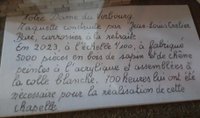 Notre Dame du Vorbourg
Maquette construite par Jean-Louis
carrossier à la retraite
En 2023, à l'échelle 1/100, a fabriqué
5000 pièces en bois de sapin & de chêne
peintes à l'acrylique et assemblées à
la colle blanche. 700 heures lui ont été
nécessaire pour la réalisation de cette
chapelle